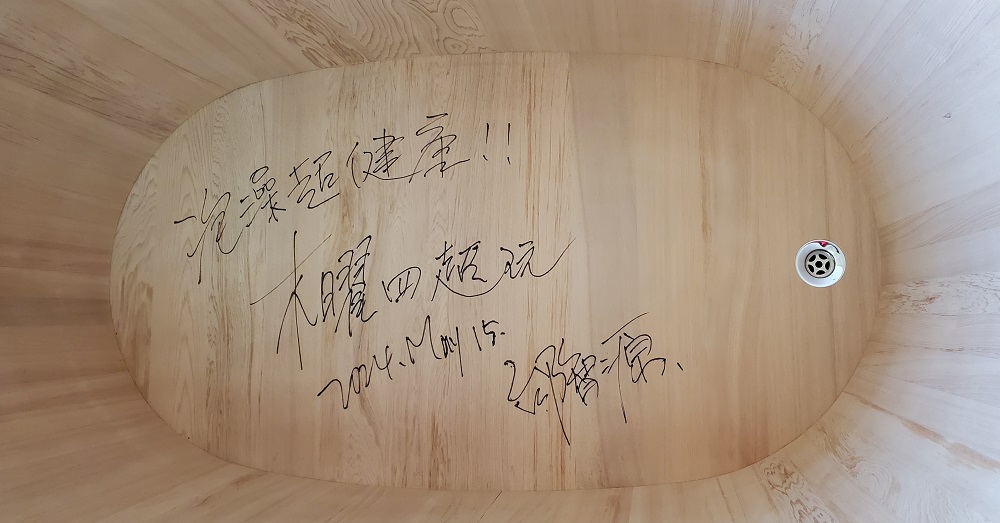 泡澡超健康!!
木曜四超玩
2024. May 15.
邰智源、